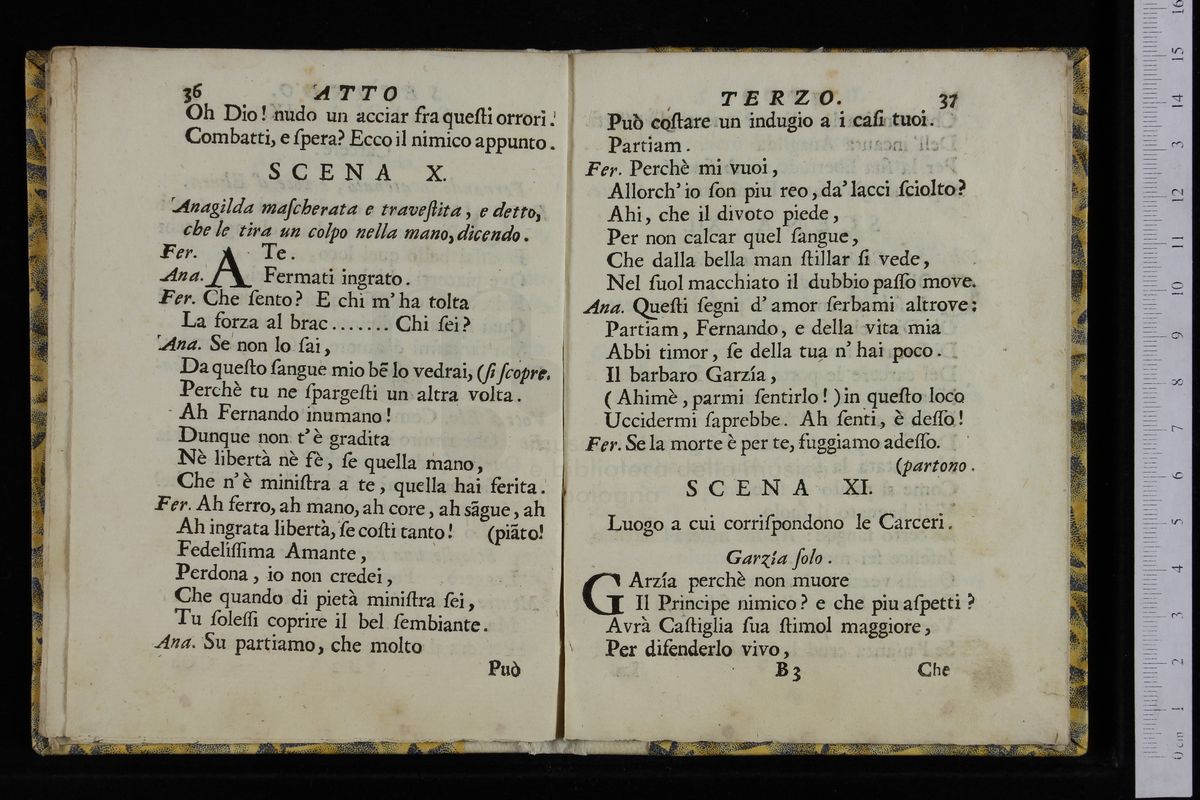 36 ATTO
Oh Dio! nudo un acciar fra queſti orrori!
Combatti, e ſpera? Ecco il nimico appunto.
SCENA X.
Anagilda maſcherata e traveſtita, e detto,
che le tira un colpo nella mano, dicendo.
Fer. A Te.
Ana. Fermati ingrato.
Fer. Che ſento? E chi m'ha tolta
La forza al brac....... Chi ſei?
Ana. Se non lo ſai,
Da queſto ſangue mio bē lo vedrai, (ſi ſcopre.
Perchè tu ne ſpargeſti un altra volta.
Ah Fernando inumano!
Dunque non t'è gradita
Nè libertà nè fè, ſe quella mano,
Che n'è miniſtra a te, quella hai ferita.
Fer. Ah ferro, ah mano, ah core, ah sāgue, ah
Ah ingrata libertà, ſe coſti tanto! (piāto!
Fedeliſſima Amante,
Perdona, io non credei,
Che quando di pietà miniſtra ſei,
Tu ſoleſſi coprire il bel ſembiante.
Ana. Su partiamo, che molto
Può
TERZO. 37
Può coſtare un indugio a i caſi tuoi.
Partiam.
Fer. Perchè mi vuoi,
Allorch'io ſon piu reo, da'lacci ſciolto?
Ahi, che il divoto piede,
Per non calcar quel ſangue,
Che dalla bella man ſtillar ſi vede,
Nel ſuol macchiato il dubbio paſſo move.
Ana. Queſti ſegni d'amor ſerbami altrove:
Partiam, Fernando, e della vita mia
Abbi timor, ſe della tua n'hai poco.
Il barbaro Garzía,
(Ahimè, parmi ſentirlo!) in queſto loco
Uccidermi ſaprebbe. Ah ſenti, è deſſo!
Fer. Se la morte è per te, fuggiamo adeſſo.
(partono.
SCENA XI.
Luogo a cui corriſpondono le Carceri.
Garzía ſolo.
GArzía perchè non muore
Il Principe nimico? e che piu aſpetti?
Avrà Caſtiglia ſua ſtimol maggiore,
Per difenderlo vivo,
B3 Che
0 cm 1 2 3 4 5 6 7 8 9 10 11 12 13 14 15 16